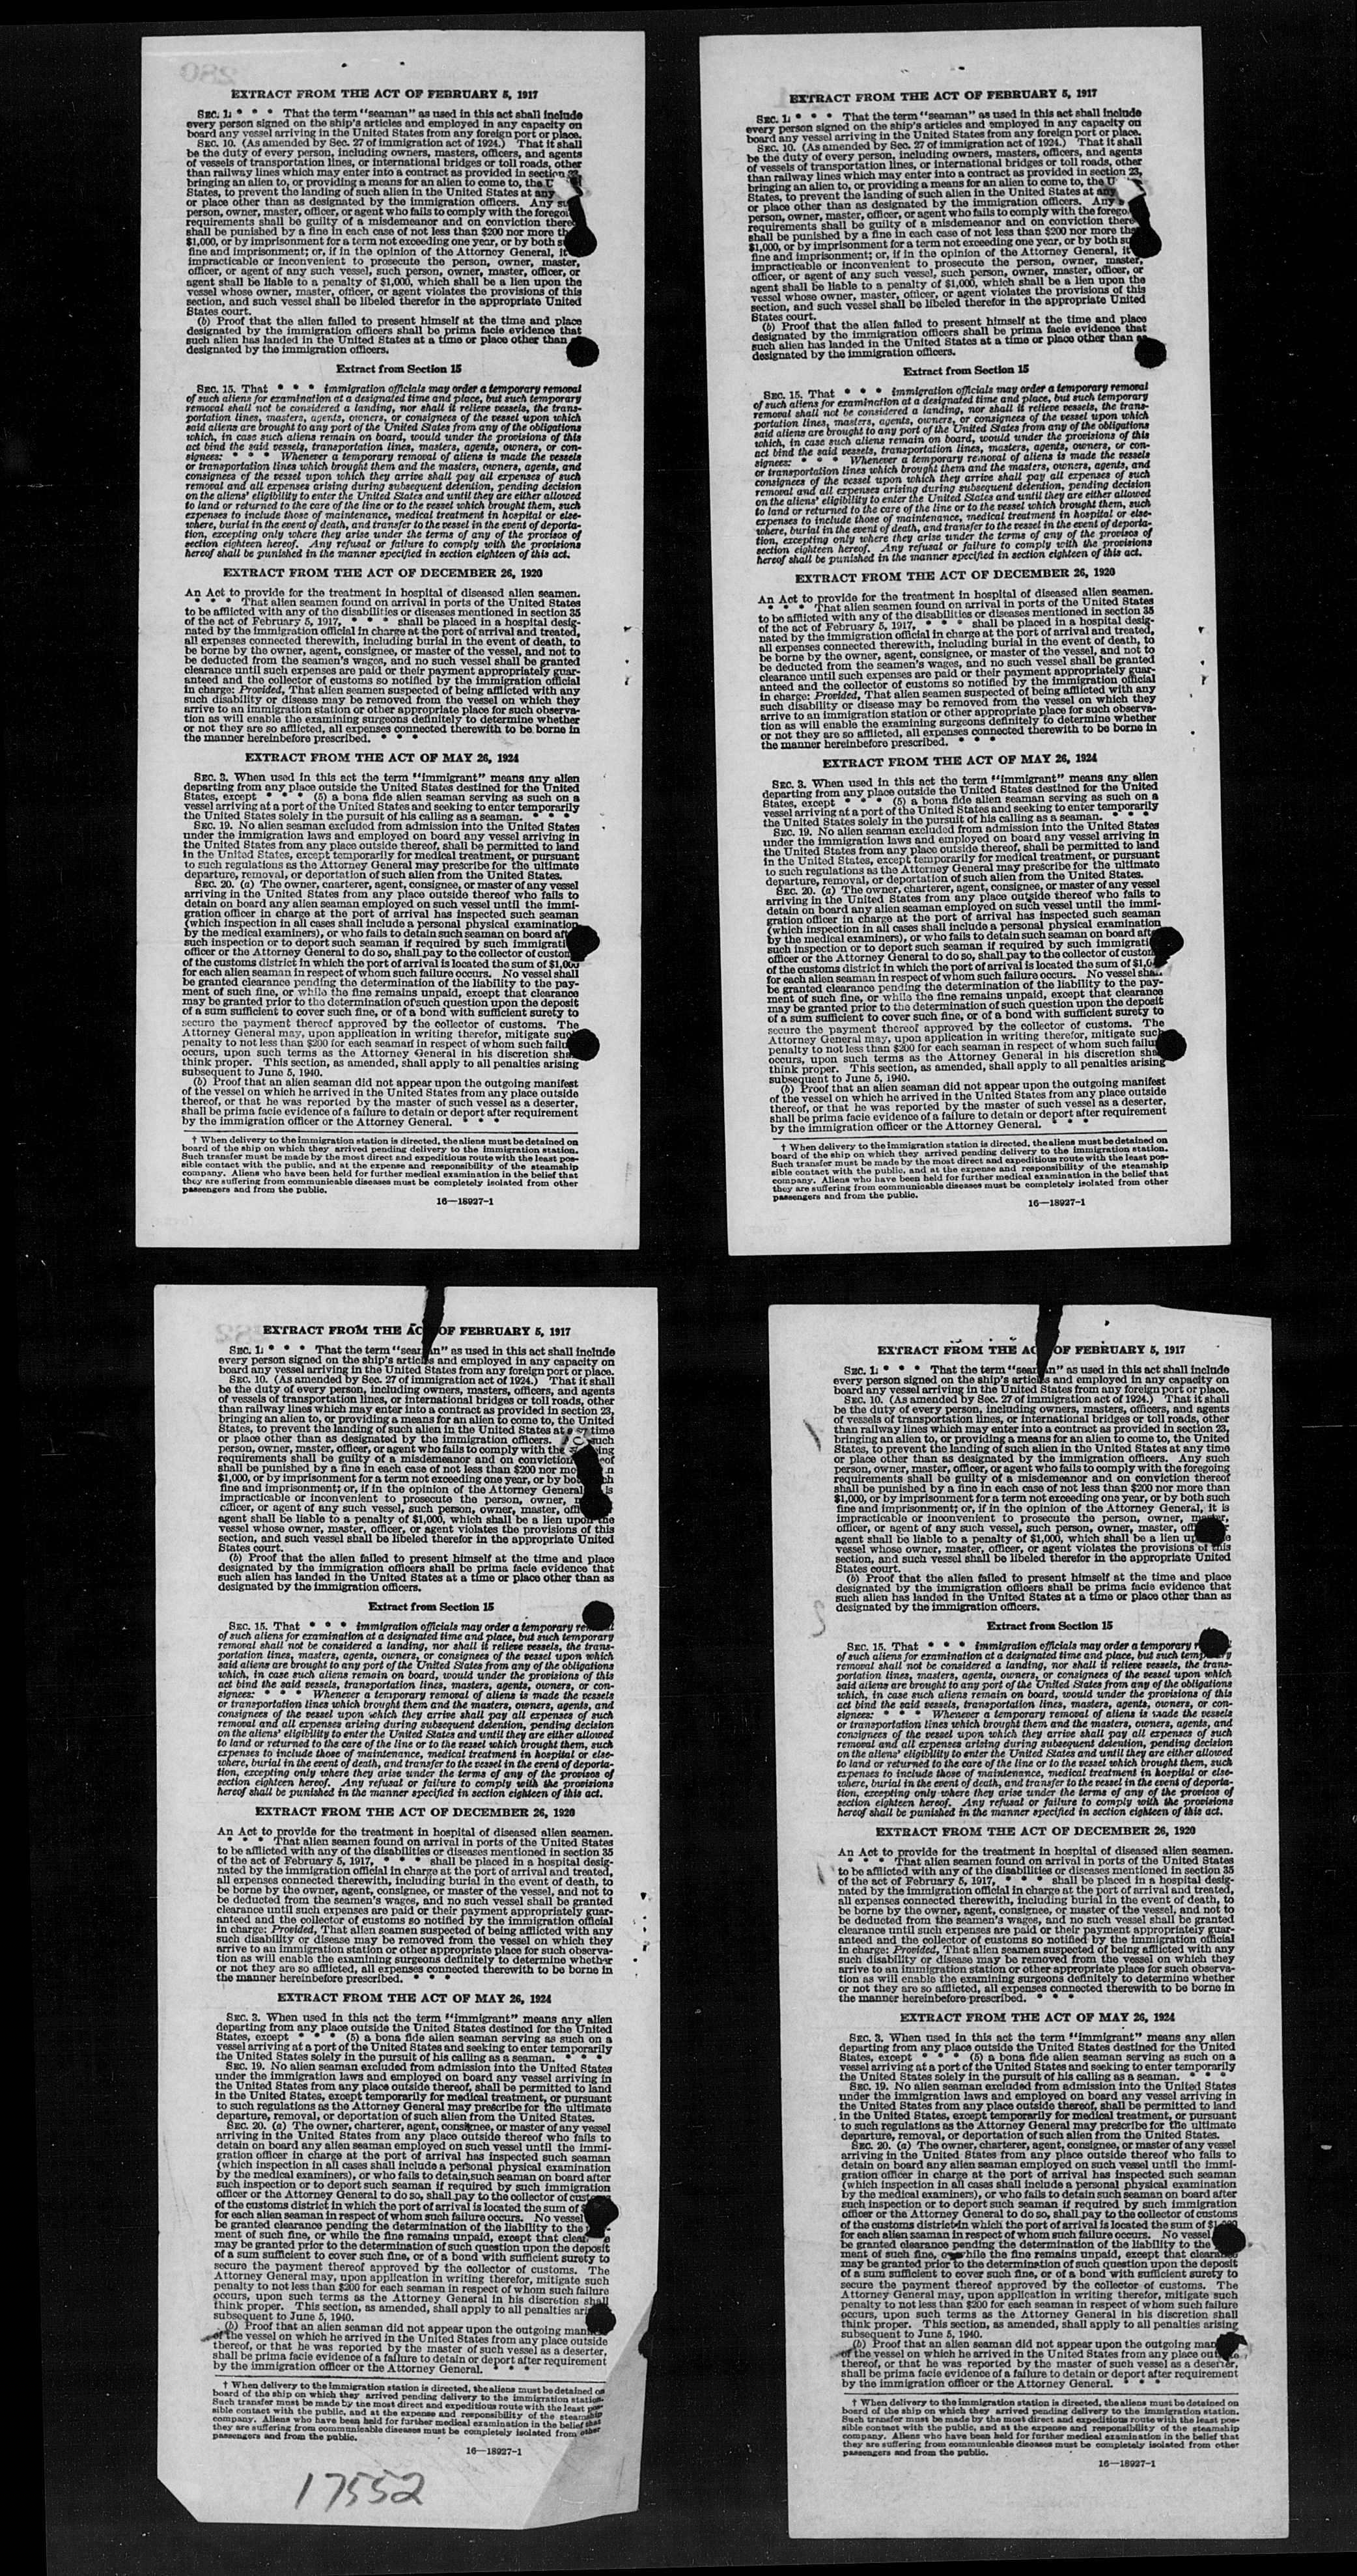 EXTRACT FROM THE ACT OF FEBRUARY 5, 1917
SEC. 1: * * * That the term "seaman" as used in this act shall include
every person signed on the ship's articles and employed in any capacity on
board any vessel arriving in the United States from any foreign port or place.
SEC. 10. (As amended by Sec. 27 of immigration act of 1924.) That it shall
be the duty of every person, including owners, masters, officers, and agents
of vessels of transportation lines, or international bridges or toll roads, other
than railway lines which may enter into a contract as provided in section 23,
bringing an alien to, or providing a means for an alien to come to, the
States, to prevent the landing of such alien in the United States at any
or place other than as designated by the immigration officers. Any
person, owner, master, officer, or agent who fails to comply with the
requirements shall be guilty of a misdemeanor and on conviction
shall be punished by a fine in each case of not less than $200 nor more
$1,000, or by imprisonment for a term not exceeding one year, or by both
fine and imprisonment; or, if in the opinion of the Attorney General, it
impracticable or inconvenient to prosecute the person, owner, master,
officer, or agent of any such vessel, such person, owner, master, officer, or
agent shall be liable to a penalty of $1,000, which shall be a lien upon the
vessel whose owner, master, officer, or agent violates the provisions of this
section, and such vessel shall be libeled therefor in the appropriate United
States court.
(b) Proof that the alien failed to present himself at the time and place
designated by the immigration officers shall be prima facie evidence that
such alien has landed in the United States at a time or place other than
designated by the immigration officers.
Extract from Section 15
SEC. 15. That * * * immigration officials may order a temporary removal
of such aliens for examination at a designated time and place, but such temporary
removal shall not be considered a landing, nor shall it relieve vessels, the trans-
portation lines, masters, agents, owners, or consignees of the vessel upon which
said aliens are brought to any port of the United States from any of the obligations
which, in case such aliens remain on board, would under the provisions of this
act bind the said vessels, transportation lines, masters, agents, owners, or con-
signees: * * * Whenever a temporary removal of aliens is made the vessels
or transportation lines which brought them and the masters, owners, agents, and
consignees of the vessel upon which they arrive shall pay all expenses of such
removal and all expenses arising during subsequent detention, pending decision
on the aliens' eligibility to enter the United States and until they are either allowed
to land or returned to the care of the line or to the vessel which brought them, such
expenses to include those of maintenance, medical treatment in hospital or else-
where, burial in the event of death, and transfer to the vessel in the event of deporta-
tion, excepting only where they arise under the terms of any of the provisos of
section eighteen hereof. Any refusal or failure to comply with the provisions
hereof shall be punished in the manner specified in section eighteen of this act.
EXTRACT FROM THE ACT OF DECEMBER 26, 1920
An Act to provide for the treatment in hospital of diseased alien seamen.
* * * That alien seamen found on arrival in ports of the United States
to be afflicted with any of the disabilities or diseases mentioned in section 35
of the act of February 5, 1917, * * * shall be placed in a hospital desig-
nated by the immigration official in charge at the port of arrival and treated,
all expenses connected therewith, including burial in the event of death, to
be borne by the owner, agent, consignee, or master of the vessel, and not to
be deducted from the seamen's wages, and no such vessel shall be granted
clearance until such expenses are paid or their payment appropriately guar-
anteed and the collector of customs so notified by the immigration official
in charge: Provided, That alien seamen suspected of being afflicted with any
such disability or disease may be removed from the vessel on which they
arrive to an immigration station or other appropriate place for such observa-
tion as will enable the examining surgeons definitely to determine whether
or not they are so afflicted, all expenses connected therewith to be borne in
the manner hereinbefore prescribed. * * *
EXTRACT FROM THE ACT OF MAY 26, 1924
SEC. 3. When used in this act the term "immigrant" means any alien
departing from any place outside the United States destined for the United
States, except * * * (5) a bona fide alien seaman serving as such on a
vessel arriving at a port of the United States and seeking to enter temporarily
the United States solely in the pursuit of his calling as a seaman. * * *
SEC. 19. No alien seaman excluded from admission into the United States
under the immigration laws and employed on board any vessel arriving in
the United States from any place outside thereof, shall be permitted to land
in the United States, except temporarily for medical treatment, or pursuant
to such regulations as the Attorney General may prescribe for the ultimate
departure, removal, or deportation of such alien from the United States.
SEC. 20. (a) The owner, charterer, agent, consignee, or master of any vessel
arriving in the United States from any place outside thereof who fails to
detain on board any alien seaman employed on such vessel until the immi-
gration officer in charge at the port of arrival has inspected such seaman
(which inspection in all cases shall include a personal physical examination
by the medical examiners), or who fails to detain such seaman on board
such inspection or to deport such seaman if required by such
officer or the Attorney General to do so, shall pay to the collector of
of the customs district in which the port of arrival is located the sum of $1,000
for each alien seaman in respect of whom such failure occurs. No vessel shall
be granted clearance pending the determination of the liability to the pay-
ment of such fine, or while the fine remains unpaid, except that clearance
may be granted prior to the determination of such question upon the deposit
of a sum sufficient to cover such fine, or of a bond with sufficient surety to
secure the payment thereof approved by the collector of customs. The
Attorney General may, upon application in writing therefor, mitigate such
penalty to not less than $200 for each seaman in respect of whom such
occurs, upon such terms as the Attorney General in his discretion
think proper. This section, as amended, shall apply to all penalties arising
subsequent to June 5, 1940.
(b) Proof that an alien seaman did not appear upon the outgoing manifest
of the vessel on which he arrived in the United States from any place outside
thereof, or that he was reported by the master of such vessel as a deserter,
shall be prima facie evidence of a failure to detain or deport after requirement
by the immigration officer or the Attorney General. * * *
† When delivery to the immigration station is directed, the aliens must be detained on
board of the ship on which they arrived pending delivery to the immigration station.
Such transfer must be made by the most direct and expeditious route with the least pos-
sible contact with the public, and at the expense and responsibility of the steamship
company. Aliens who have been held for further medical examination in the belief that
they are suffering from communicable diseases must be completely isolated from other
passengers and from the public.
16—18927-1
EXTRACT FROM THE ACT OF FEBRUARY 5, 1917
SEC. 1: * * * That the term "seaman" as used in this act shall include
every person signed on the ship's articles and employed in any capacity on
board any vessel arriving in the United States from any foreign port or place.
SEC. 10. (As amended by Sec. 27 of immigration act of 1924.) That it shall
be the duty of every person, including owners, masters, officers, and agents
of vessels of transportation lines, or international bridges or toll roads, other
than railway lines which may enter into a contract as provided in section 23,
bringing an alien to, or providing a means for an alien to come to, the
States, to prevent the landing of such alien in the United States at any
or place other than as designated by the immigration officers. Any
person, owner, master, officer, or agent who fails to comply with the
requirements shall be guilty of a misdemeanor and on conviction
shall be punished by a fine in each case of not less than $200 nor more
$1,000, or by imprisonment for a term not exceeding one year, or by both
fine and imprisonment; or, if in the opinion of the Attorney General, it
impracticable or inconvenient to prosecute the person, owner, master,
officer, or agent of any such vessel, such person, owner, master, officer, or
agent shall be liable to a penalty of $1,000, which shall be a lien upon the
vessel whose owner, master, officer, or agent violates the provisions of this
section, and such vessel shall be libeled therefor in the appropriate United
States court.
(b) Proof that the alien failed to present himself at the time and place
designated by the immigration officers shall be prima facie evidence that
such alien has landed in the United States at a time or place other than
designated by the immigration officers.
Extract from Section 15
SEC. 15. That * * * immigration officials may order a temporary removal
of such aliens for examination at a designated time and place, but such temporary
removal shall not be considered a landing, nor shall it relieve vessels, the trans-
portation lines, masters, agents, owners, or consignees of the vessel upon which
said aliens are brought to any port of the United States from any of the obligations
which, in case such aliens remain on board, would under the provisions of this
act bind the said vessels, transportation lines, masters, agents, owners, or con-
signees: * * * Whenever a temporary removal of aliens is made the vessels
or transportation lines which brought them and the masters, owners, agents, and
consignees of the vessel upon which they arrive shall pay all expenses of such
removal and all expenses arising during subsequent detention, pending decision
on the aliens' eligibility to enter the United States and until they are either allowed
to land or returned to the care of the line or to the vessel which brought them, such
expenses to include those of maintenance, medical treatment in hospital or else-
where, burial in the event of death, and transfer to the vessel in the event of deporta-
tion, excepting only where they arise under the terms of any of the provisos of
section eighteen hereof. Any refusal or failure to comply with the provisions
hereof shall be punished in the manner specified in section eighteen of this act.
EXTRACT FROM THE ACT OF DECEMBER 26, 1920
An Act to provide for the treatment in hospital of diseased alien seamen.
* * * That alien seamen found on arrival in ports of the United States
to be afflicted with any of the disabilities or diseases mentioned in section 35
of the act of February 5, 1917, * * * shall be placed in a hospital desig-
nated by the immigration official in charge at the port of arrival and treated,
all expenses connected therewith, including burial in the event of death, to
be borne by the owner, agent, consignee, or master of the vessel, and not to
be deducted from the seamen's wages, and no such vessel shall be granted
clearance until such expenses are paid or their payment appropriately guar-
anteed and the collector of customs so notified by the immigration official
in charge: Provided, That alien seamen suspected of being afflicted with any
such disability or disease may be removed from the vessel on which they
arrive to an immigration station or other appropriate place for such observa-
tion as will enable the examining surgeons definitely to determine whether
or not they are so afflicted, all expenses connected therewith to be borne in
the manner hereinbefore prescribed. * * *
EXTRACT FROM THE ACT OF MAY 26, 1924
SEC. 3. When used in this act the term "immigrant" means any alien
departing from any place outside the United States destined for the United
States, except * * * (5) a bona fide alien seaman serving as such on a
vessel arriving at a port of the United States and seeking to enter temporarily
the United States solely in the pursuit of his calling as a seaman. * * *
SEC. 19. No alien seaman excluded from admission into the United States
under the immigration laws and employed on board any vessel arriving in
the United States from any place outside thereof, shall be permitted to land
in the United States, except temporarily for medical treatment, or pursuant
to such regulations as the Attorney General may prescribe for the ultimate
departure, removal, or deportation of such alien from the United States.
SEC. 20. (a) The owner, charterer, agent, consignee, or master of any vessel
arriving in the United States from any place outside thereof who fails to
detain on board any alien seaman employed on such vessel until the immi-
gration officer in charge at the port of arrival has inspected such seaman
(which inspection in all cases shall include a personal physical examination
by the medical examiners), or who fails to detain such seaman on board
such inspection or to deport such seaman if required by such
officer or the Attorney General to do so, shall pay to the collector of
of the customs district in which the port of arrival is located the sum of
for each alien seaman in respect of whom such failure occurs. No vessel
be granted clearance pending the determination of the liability to the pay-
ment of such fine, or while the fine remains unpaid, except that clearance
may be granted prior to the determination of such question upon the deposit
of a sum sufficient to cover such fine, or of a bond with sufficient surety to
secure the payment thereof approved by the collector of customs. The
Attorney General may, upon application in writing therefor, mitigate such
penalty to not less than $200 for each seaman in respect of whom such
occurs, upon such terms as the Attorney General in his discretion
think proper. This section, as amended, shall apply to all penalties arising
subsequent to June 5, 1940.
(b) Proof that an alien seaman did not appear upon the outgoing manifest
of the vessel on which he arrived in the United States from any place outside
thereof, or that he was reported by the master of such vessel as a deserter,
shall be prima facie evidence of a failure to detain or deport after requirement
by the immigration officer or the Attorney General. * * *
† When delivery to the immigration station is directed, the aliens must be detained on
board of the ship on which they arrived pending delivery to the immigration station.
Such transfer must be made by the most direct and expeditious route with the least pos-
sible contact with the public, and at the expense and responsibility of the steamship
company. Aliens who have been held for further medical examination in the belief that
they are suffering from communicable diseases must be completely isolated from other
passengers and from the public.
16—18927-1
EXTRACT FROM THE OF FEBRUARY 5, 1917
SEC. 1: * * * That the term as used in this act shall include
every person signed on the ship's articles and employed in any capacity on
board any vessel arriving in the United States from any foreign port or place.
SEC. 10. (As amended by Sec. 27 of immigration act of 1924.) That it shall
be the duty of every person, including owners, masters, officers, and agents
of vessels of transportation lines, or international bridges or toll roads, other
than railway lines which may enter into a contract as provided in section 23,
bringing an alien to, or providing a means for an alien to come to, the United
States, to prevent the landing of such alien in the United States at time
or place other than as designated by the immigration officers. such
person, owner, master, officer, or agent who fails to comply with the
requirements shall be guilty of a misdemeanor and on conviction
shall be punished by a fine in each case of not less than $200 nor
$1,000, or by imprisonment for a term not exceeding one year, or by
fine and imprisonment; or, if in the opinion of the Attorney General is
impracticable or inconvenient to prosecute the person, owner,
officer, or agent of any such vessel, such person, owner, master,
agent shall be liable to a penalty of $1,000, which shall be a lien upon the
vessel whose owner, master, officer, or agent violates the provisions of this
section, and such vessel shall be libeled therefor in the appropriate United
States court.
(b) Proof that the alien failed to present himself at the time and place
designated by the immigration officers shall be prima facie evidence that
such alien has landed in the United States at a time or place other than as
designated by the immigration officers.
Extract from Section 15
SEC. 15. That * * * immigration officials may order a temporary
of such aliens for examination at a designated time and place, but such temporary
removal shall not be considered a landing, nor shall it relieve vessels, the trans-
portation lines, masters, agents, owners, or consignees of the vessel upon which
said aliens are brought to any port of the United States from any of the obligations
which, in case such aliens remain on board, would under the provisions of this
act bind the said vessels, transportation lines, masters, agents, owners, or con-
signees: * * * Whenever a temporary removal of aliens is made the vessels
or transportation lines which brought them and the masters, owners, agents, and
consignees of the vessel upon which they arrive shall pay all expenses of such
removal and all expenses arising during subsequent detention, pending decision
on the aliens' eligibility to enter the United States and until they are either allowed
to land or returned to the care of the line or to the vessel which brought them, such
expenses to include those of maintenance, medical treatment in hospital or else-
where, burial in the event of death, and transfer to the vessel in the event of deporta-
tion, excepting only where they arise under the terms of any of the provisos of
section eighteen hereof. Any refusal or failure to comply with the provisions
hereof shall be punished in the manner specified in section eighteen of this act.
EXTRACT FROM THE ACT OF DECEMBER 26, 1920
An Act to provide for the treatment in hospital of diseased alien seamen.
* * * That alien seamen found on arrival in ports of the United States
to be afflicted with any of the disabilities or diseases mentioned in section 35
of the act of February 5, 1917, * * * shall be placed in a hospital desig-
nated by the immigration official in charge at the port of arrival and treated,
all expenses connected therewith, including burial in the event of death, to
be borne by the owner, agent, consignee, or master of the vessel, and not to
be deducted from the seamen's wages, and no such vessel shall be granted
clearance until such expenses are paid or their payment appropriately guar-
anteed and the collector of customs so notified by the immigration official
in charge: Provided, That alien seamen suspected of being afflicted with any
such disability or disease may be removed from the vessel on which they
arrive to an immigration station or other appropriate place for such observa-
tion as will enable the examining surgeons definitely to determine whether
or not they are so afflicted, all expenses connected therewith to be borne in
the manner hereinbefore prescribed. * * *
EXTRACT FROM THE ACT OF MAY 26, 1924
SEC. 3. When used in this act the term "immigrant" means any alien
departing from any place outside the United States destined for the United
States, except * * * (5) a bona fide alien seaman serving as such on a
vessel arriving at a port of the United States and seeking to enter temporarily
the United States solely in the pursuit of his calling as a seaman. * * *
SEC. 19. No alien seaman excluded from admission into the United States
under the immigration laws and employed on board any vessel arriving in
the United States from any place outside thereof, shall be permitted to land
in the United States, except temporarily for medical treatment, or pursuant
to such regulations as the Attorney General may prescribe for the ultimate
departure, removal, or deportation of such alien from the United States.
SEC. 20. (a) The owner, charterer, agent, consignee, or master of any vessel
arriving in the United States from any place outside thereof who fails to
detain on board any alien seaman employed on such vessel until the immi-
gration officer in charge at the port of arrival has inspected such seaman
(which inspection in all cases shall include a personal physical examination
by the medical examiners), or who fails to detain such seaman on board after
such inspection or to deport such seaman if required by such immigration
officer or the Attorney General to do so, shall pay to the collector of
of the customs district in which the port of arrival is located the sum of
for each alien seaman in respect of whom such failure occurs. No vessel
be granted clearance pending the determination of the liability to the
ment of such fine, or while the fine remains unpaid, except that
may be granted prior to the determination of such question upon the deposit
of a sum sufficient to cover such fine, or of a bond with sufficient surety to
secure the payment thereof approved by the collector of customs. The
Attorney General may, upon application in writing therefor, mitigate such
penalty to not less than $200 for each seaman in respect of whom such failure
occurs, upon such terms as the Attorney General in his discretion shall
think proper. This section, as amended, shall apply to all penalties
subsequent to June 5, 1940.
(b) Proof that an alien seaman did not appear upon the outgoing
of the vessel on which he arrived in the United States from any place outside
thereof, or that he was reported by the master of such vessel as a deserter,
shall be prima facie evidence of a failure to detain or deport after requirement
by the immigration officer or the Attorney General. * * *
† When delivery to the immigration station is directed, the aliens must be detained on
board of the ship on which they arrived pending delivery to the immigration station.
Such transfer must be made by the most direct and expeditious route with the least pos-
sible contact with the public, and at the expense and responsibility of the steamship
company. Aliens who have been held for further medical examination in the belief that
they are suffering from communicable diseases must be completely isolated from other
passengers and from the public.
16—18927-1
17552
EXTRACT FROM THE OF FEBRUARY 5, 1917
SEC. 1: * * * That the term as used in this act shall include
every person signed on the ship's articles and employed in any capacity on
board any vessel arriving in the United States from any foreign port or place.
SEC. 10. (As amended by Sec. 27 of immigration act of 1924.) That it shall
be the duty of every person, including owners, masters, officers, and agents
of vessels of transportation lines, or international bridges or toll roads, other
than railway lines which may enter into a contract as provided in section 23,
bringing an alien to, or providing a means for an alien to come to, the United
States, to prevent the landing of such alien in the United States at any time
or place other than as designated by the immigration officers. Any such
person, owner, master, officer, or agent who fails to comply with the foregoing
requirements shall be guilty of a misdemeanor and on conviction thereof
shall be punished by a fine in each case of not less than $200 nor more than
$1,000, or by imprisonment for a term not exceeding one year, or by both such
fine and imprisonment; or, if in the opinion of the Attorney General, it is
impracticable or inconvenient to prosecute the person, owner, master,
officer, or agent of any such vessel, such person, owner, master,
agent shall be liable to a penalty of $1,000, which shall be a lien
vessel whose owner, master, officer, or agent violates the provisions of this
section, and such vessel shall be libeled therefor in the appropriate United
States court.
(b) Proof that the alien failed to present himself at the time and place
designated by the immigration officers shall be prima facie evidence that
such alien has landed in the United States at a time or place other than as
designated by the immigration officers.
Extract from Section 15
SEC. 15. That * * * immigration officials may order a temporary
of such aliens for examination at a designated time and place, but such temporary
removal shall not be considered a landing, nor shall it relieve vessels, the trans-
portation lines, masters, agents, owners, or consignees of the vessel upon which
said aliens are brought to any port of the United States from any of the obligations
which, in case such aliens remain on board, would under the provisions of this
act bind the said vessels, transportation lines, masters, agents, owners, or con-
signees: * * * Whenever a temporary removal of aliens is made the vessels
or transportation lines which brought them and the masters, owners, agents, and
consignees of the vessel upon which they arrive shall pay all expenses of such
removal and all expenses arising during subsequent detention, pending decision
on the aliens' eligibility to enter the United States and until they are either allowed
to land or returned to the care of the line or to the vessel which brought them, such
expenses to include those of maintenance, medical treatment in hospital or else-
where, burial in the event of death, and transfer to the vessel in the event of deporta-
tion, excepting only where they arise under the terms of any of the provisos of
section eighteen hereof. Any refusal or failure to comply with the provisions
hereof shall be punished in the manner specified in section eighteen of this act.
EXTRACT FROM THE ACT OF DECEMBER 26, 1920
An Act to provide for the treatment in hospital of diseased alien seamen.
* * * That alien seamen found on arrival in ports of the United States
to be afflicted with any of the disabilities or diseases mentioned in section 35
of the act of February 5, 1917, * * * shall be placed in a hospital desig-
nated by the immigration official in charge at the port of arrival and treated,
all expenses connected therewith, including burial in the event of death, to
be borne by the owner, agent, consignee, or master of the vessel, and not to
be deducted from the seamen's wages, and no such vessel shall be granted
clearance until such expenses are paid or their payment appropriately guar-
anteed and the collector of customs so notified by the immigration official
in charge: Provided, That alien seamen suspected of being afflicted with any
such disability or disease may be removed from the vessel on which they
arrive to an immigration station or other appropriate place for such observa-
tion as will enable the examining surgeons definitely to determine whether
or not they are so afflicted, all expenses connected therewith to be borne in
the manner hereinbefore prescribed. * * *
EXTRACT FROM THE ACT OF MAY 26, 1924
SEC. 3. When used in this act the term "immigrant" means any alien
departing from any place outside the United States destined for the United
States, except * * * (5) a bona fide alien seaman serving as such on a
vessel arriving at a port of the United States and seeking to enter temporarily
the United States solely in the pursuit of his calling as a seaman. * * *
SEC. 19. No alien seaman excluded from admission into the United States
under the immigration laws and employed on board any vessel arriving in
the United States from any place outside thereof, shall be permitted to land
in the United States, except temporarily for medical treatment, or pursuant
to such regulations as the Attorney General may prescribe for the ultimate
departure, removal, or deportation of such alien from the United States.
SEC. 20. (a) The owner, charterer, agent, consignee, or master of any vessel
arriving in the United States from any place outside thereof who fails to
detain on board any alien seaman employed on such vessel until the immi-
gration officer in charge at the port of arrival has inspected such seaman
(which inspection in all cases shall include a personal physical examination
by the medical examiners), or who fails to detain such seaman on board after
such inspection or to deport such seaman if required by such immigration
officer or the Attorney General to do so, shall pay to the collector of customs
of the customs district in which the port of arrival is located the sum of
for each alien seaman in respect of whom such failure occurs. No vessel
be granted clearance pending the determination of the liability to the
ment of such fine, or while the fine remains unpaid, except that clearance
may be granted prior to the determination of such question upon the deposit
of a sum sufficient to cover such fine, or of a bond with sufficient surety to
secure the payment thereof approved by the collector of customs. The
Attorney General may, upon application in writing therefor, mitigate such
penalty to not less than $200 for each seaman in respect of whom such failure
occurs, upon such terms as the Attorney General in his discretion shall
think proper. This section, as amended, shall apply to all penalties arising
subsequent to June 5, 1940.
(b) Proof that an alien seaman did not appear upon the outgoing
of the vessel on which he arrived in the United States from any place
thereof, or that he was reported by the master of such vessel as a deserter,
shall be prima facie evidence of a failure to detain or deport after requirement
by the immigration officer or the Attorney General. * * *
† When delivery to the immigration station is directed, the aliens must be detained on
board of the ship on which they arrived pending delivery to the immigration station.
Such transfer must be made by the most direct and expeditious route with the least pos-
sible contact with the public, and at the expense and responsibility of the steamship
company. Aliens who have been held for further medical examination in the belief that
they are suffering from communicable diseases must be completely isolated from other
passengers and from the public.
16—18927-1